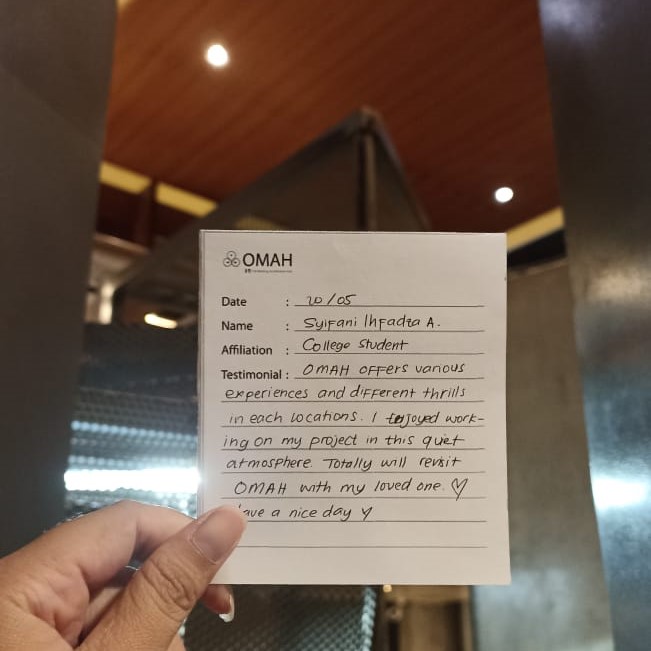 OMAH
Date : 20/05
Name : Syifani Ihfadza A.
Affiliation : College Student
Testimonial : OMAH offers various
experiences and different thrills
in each locations. I enjoyed work-
ing on my project in this quiet
atmosphere. Totally will revisit
OMAH with my loved one. ♡
ave a nice day ♡